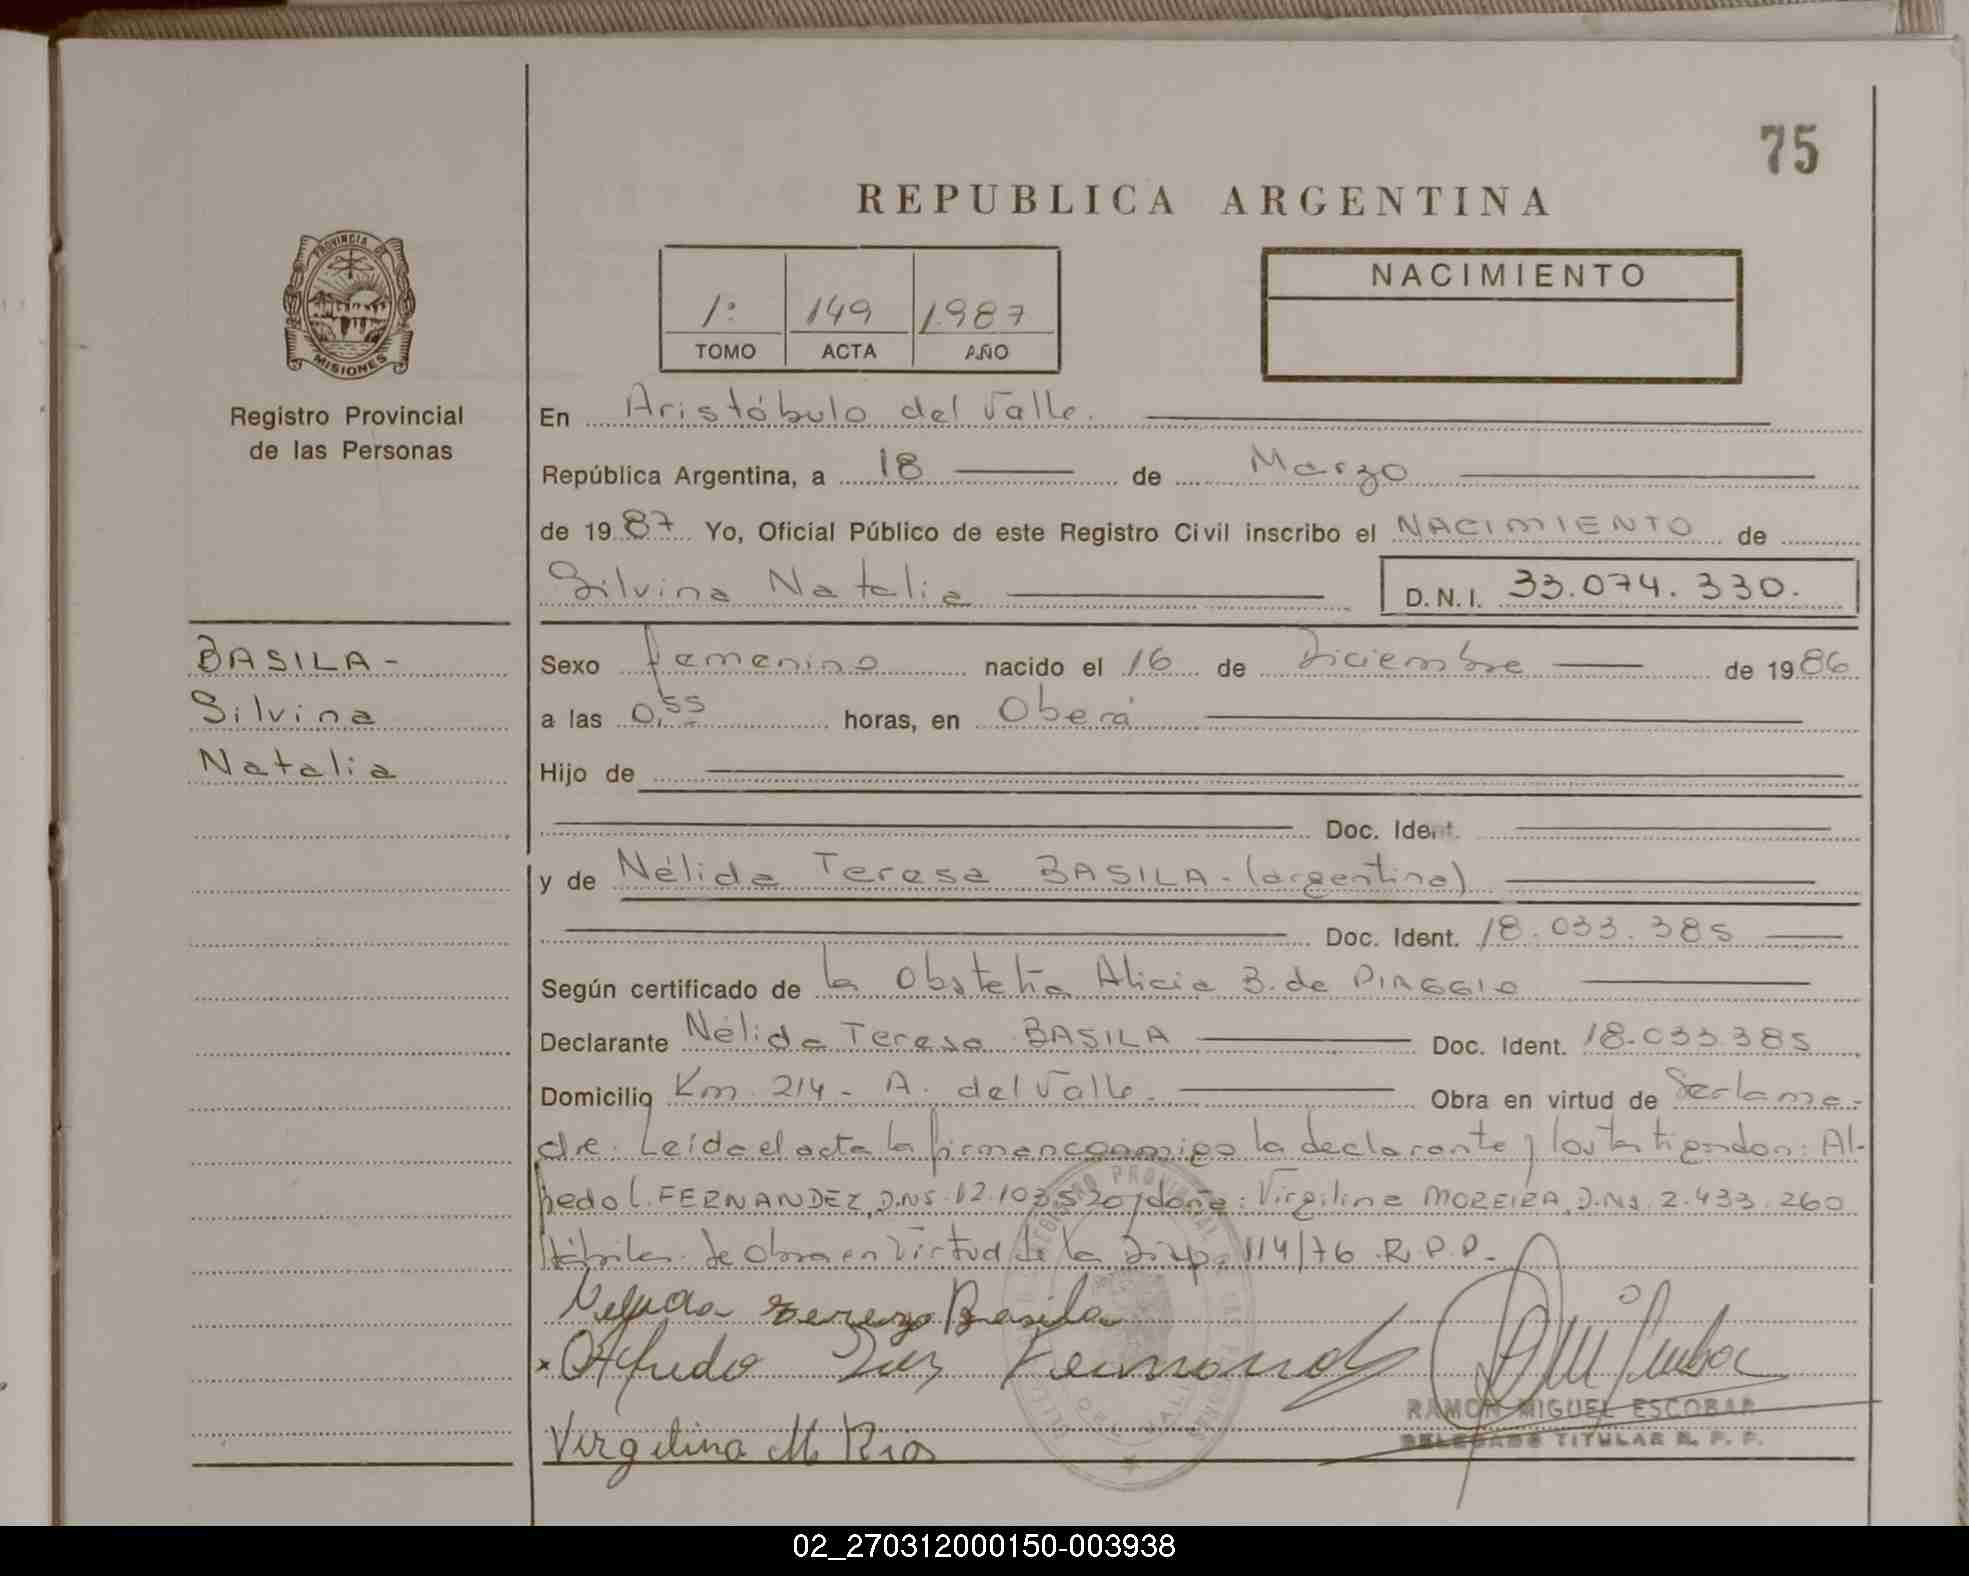 75
REPUBLICA ARGENTINA
PROVINCIA DE
MISIONES
Registro Provincial
de las Personas
1º 149 1.987
TOMO ACTA AÑO
NACIMIENTO
En Aristóbulo del Valle.
República Argentina, a 18 de Marzo
de 1987 Yo, Oficial Público de este Registro Civil inscribo el NACIMIENTO de
Silvina Natalia D.N.I. 33.074.330.
BASILA-
Silvina
Natalia
Sexo femenino nacido el 16 de Diciembre de 1986
a las 0,55 horas, en Oberá
Hijo de
Doc. Ident.
y de Nélida Teresa BASILA-(argentina)
Doc. Ident. 18.033.385
Según certificado de la Obstetra Alicia B. de
Declarante Nélida Teresa BASILA Doc. Ident. 18.033.385
Domicilio Km. 214 - A. del Valle. Obra en virtud de Ser la ma-
dre. Leída el acta la firman conmigo la declarante y los testigos don: Al-
fredo L. FERNANDEZ, D.N.I. 12.103.520 y doña: Virgilina MOREIRA, D.N.I. 2.433.260
Hábiles. Se obra en virtud de la Disp. 114/76 R.P.P.-
Teresa Basila
x Alfredo Luis Fernandez
Virgilina M. Rios
RAMON MIGUEL ESCOBAR
DELEGADO TITULAR R. P. P.
02_270312000150-003938